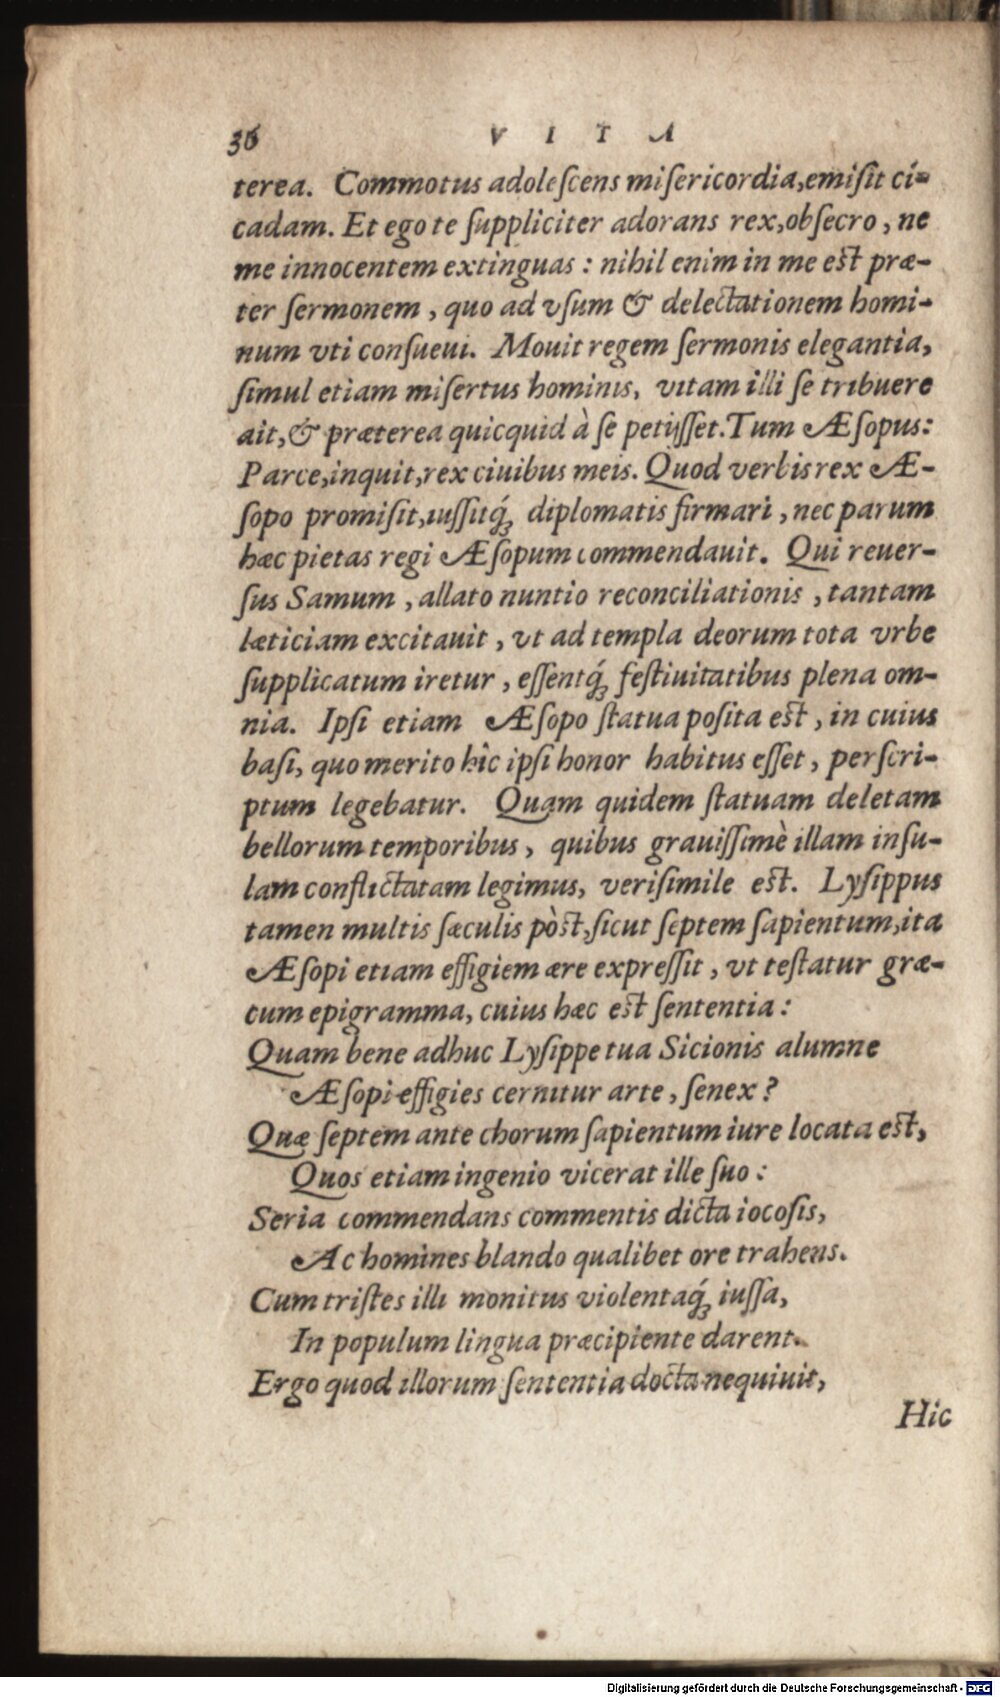 36 VITA
terea. Commotus adoleſcens miſericordia,emiſit ci-
cadam. Et ego te ſuppliciter adorans rex,obſecro, ne
me innocentem extinguas: nihil enim in me eſt præ-
ter ſermonem, quo ad vſum & delectationem homi-
num vti conſueui. Mouit regem ſermonis elegantia,
ſimul etiam miſertus hominis, vitam illi ſe tribuere
ait,& præterea quicquid à ſe petijſſet. Tum Æſopus:
Parce,inquit,rex ciuibus meis. Quod verbis rex Æ-
ſopo promiſit,iuſſitq́; diplomatis firmari, nec parum
hæc pietas regi Æſopum commendauit. Qui reuer-
ſus Samum, allato nuntio reconciliationis, tantam
læticiam excitauit, vt ad templa deorum tota vrbe
ſupplicatum iretur, eſſentq́; feſtiuitatibus plena om-
nia. Ipſi etiam Æſopo ſtatua poſita eſt, in cuius
baſi, quo merito hîc ipſi honor habitus eſſet, perſcri-
ptum legebatur. Quam quidem ſtatuam deletam
bellorum temporibus, quibus grauiſſimè illam inſu-
lam conflictatam legimus, veriſimile eſt. Lyſippus
tamen multis ſæculis pòſt,ſicut ſeptem ſapientum,ita
Æſopi etiam effigiem ære expreſſit, vt teſtatur græ-
cum epigramma, cuius hæc eſt ſententia:
Quam bene adhuc Lyſippe tua Sicionis alumne
Æſopi effigies cernitur arte, ſenex?
Quæ ſeptem ante chorum ſapientum iure locata eſt,
Quos etiam ingenio vicerat ille ſuo:
Seria commendans commentis dicta iocoſis,
Ac homines blando qualibet ore trahens.
Cum triſtes illi monitus violentaq́; iuſſa,
In populum lingua præcipiente darent.
Ergo quod illorum ſententia docta nequiuit,
Hic
Digitalisierung gefördert durch die Deutsche Forschungsgemeinschaft - DFG